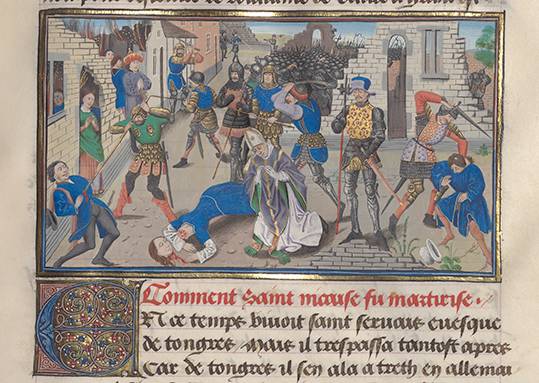 royaume de
Comment saint nicaise fu martirise.
En ce temps vivoit saint servais evesque
de tongres Mais il trespassa tantost apres
Car de tongres il sen ala a treth en allemai